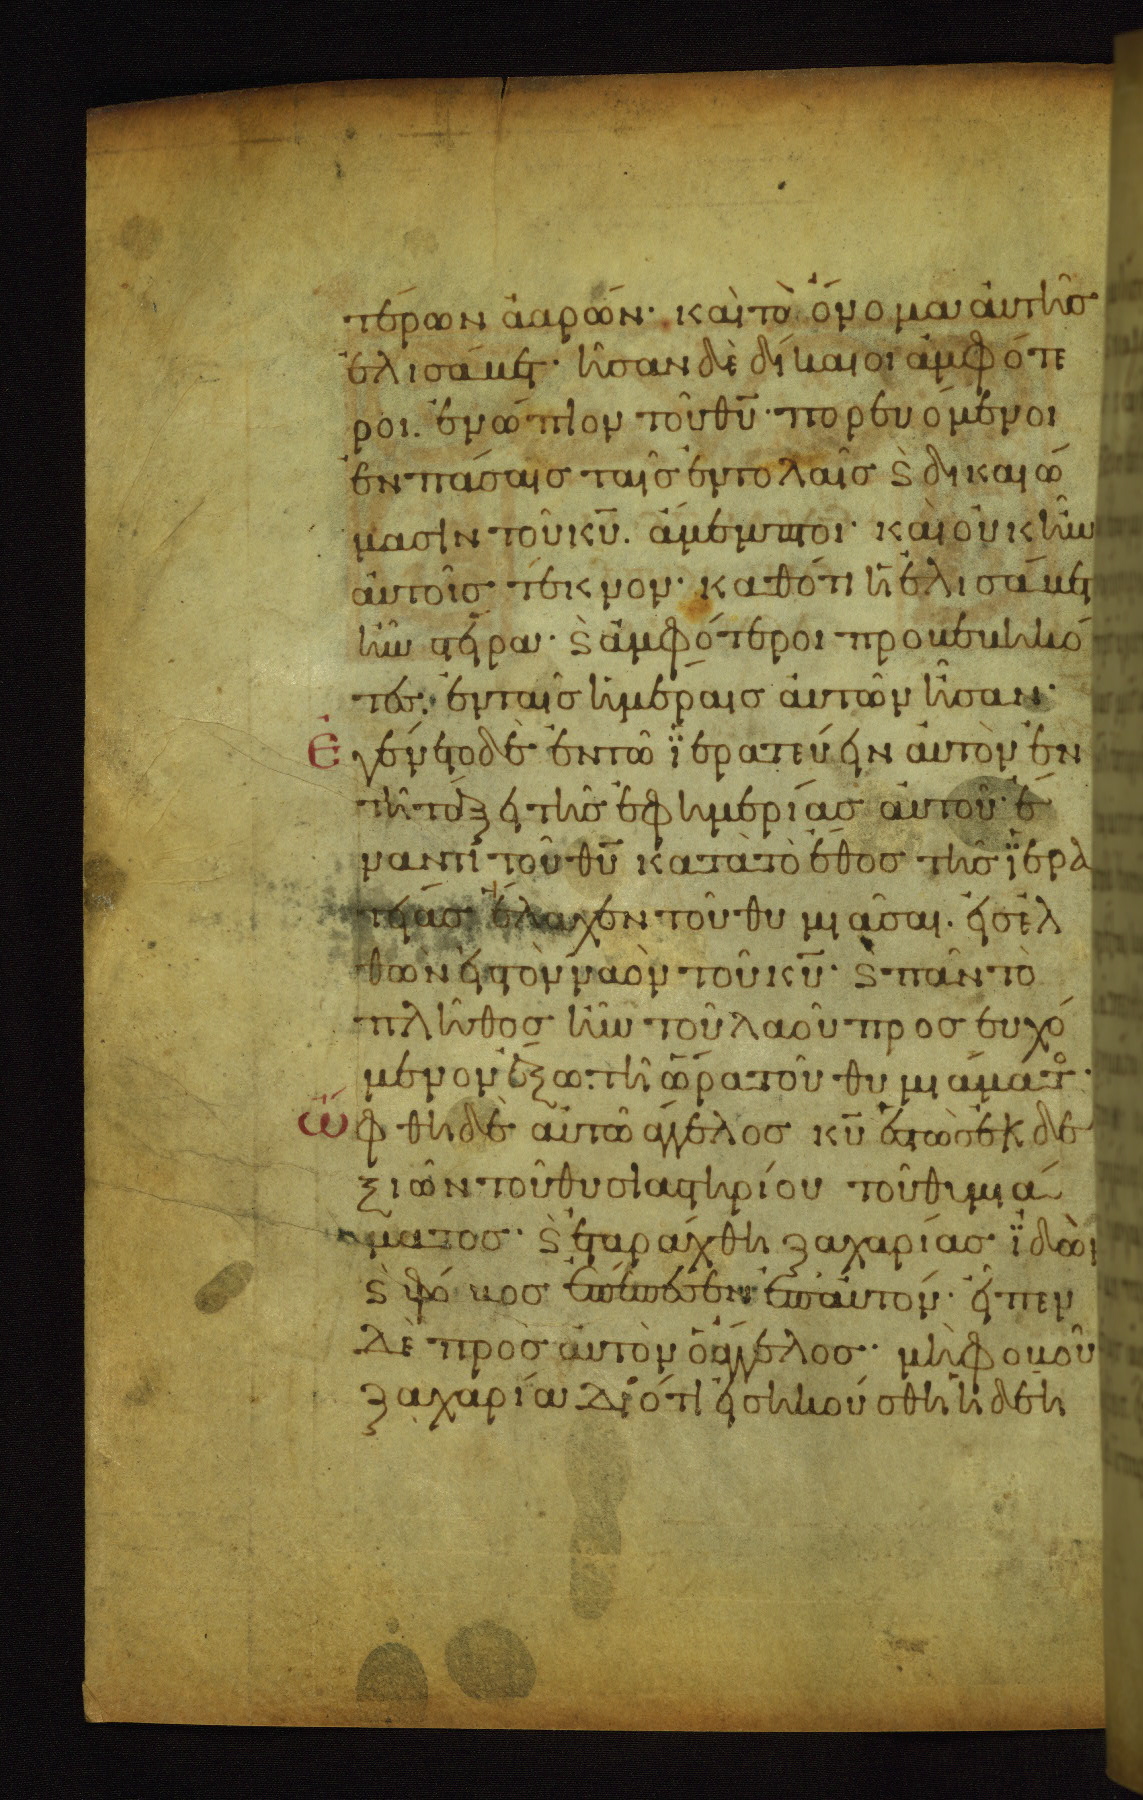 τέρων ἀαρών· καὶ τὸ ὄνομα αὐτῆσ
ἐλισάβετ· ἦσαν δὲ δίκαιοι ἀμφότε
ροι. ἐνώπιον τοῦ θ̅υ̅· πορευόμενοι
ἐν πάσαισ ταῖσ ἐντολαῖσ ϗ δικαιώ
μασιν τοῦ κ̅υ̅. ἄμεμπτοι· καὶ οὐκ ἦν
αὐτοῖσ τέκνον· καθότι ἡ ἐλισάβετ
ἦν στεῖρα· ϗ ἀμφότεροι προβεβηκό
τεσ. ἐν ταῖσ ἡμέραισ αὐτῶν ἦσαν·
Ἐγένετο δὲ ἐν τῶ ϊερατεύειν αὐτὸν ἐν
τῆ τάξει τῆσ ἐφημερίασ αὐτοῦ· ἔ
ναντι τοῦ θ̅υ̅ κατὰ τὸ ἔθοσ τῆσ ϊερα
τείασ ἔλαχεν τοῦ θυμιᾶσαι. εἰσελ
θὼν εἰσ τὸν ναὸν τοῦ κ̅υ̅· ϗ πᾶν τὸ
πλῆθοσ ἦν τοῦ λαοῦ προσευχό
μενον ἔξω. τῆ ὥρα τοῦ θυμιάματ·
Ὤφθη δὲ αὐτῶ ἄγγελοσ κ̅υ̅ ἑστὼσ ἐκ δε
ξιῶν τοῦ θυσιαστηρίου τοῦ θυμιά
ματοσ· ϗ ἐταράχθη ζαχαρίασ ϊδὼν
ϗ φόβοσ ἐπέπεσεν ἐπ' αὐτόν· εἶπεν
δὲ πρὸσ αὐτὸν ὁ ἄγγελοσ· μὴ φοβοῦ
ζαχαρία διότι εἰσηκούσθη ἡ δέη